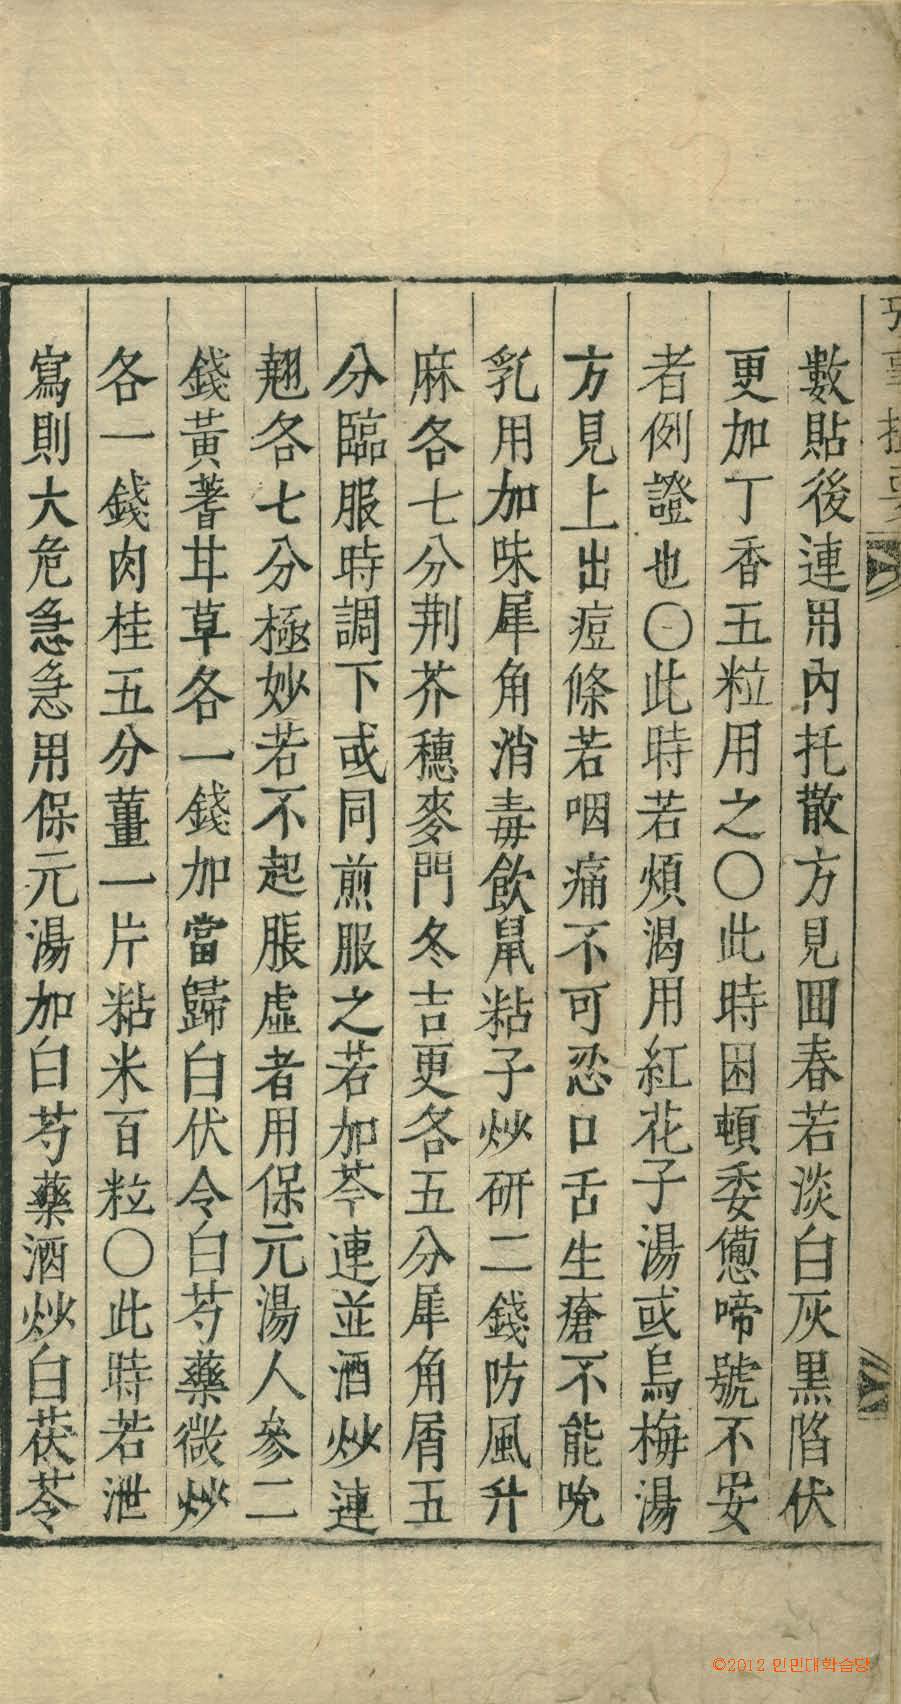 數貼後連用內托散方見回春若淡白灰黑陷伏
更加丁香五粒用之〇此時困頓委憊啼號不安
者例證也〇此時若煩渴用紅花子湯或烏梅湯
方見上出痘條若咽痛不可忍口舌生瘡不能吮
乳用加味犀角消毒飮鼠粘子炒研二錢防風升
麻各七分荆芥穗麥門冬吉更各五分犀角屑五
分臨服時調下或同煎服之若加芩連並酒炒連
翹各七分極妙若不起脹虛者用保元湯人參二
錢黃蓍甘草各一錢加當歸白伏令白芍藥微炒
各一錢肉桂五分薑一片粘米百粒〇此時若泄
寫則大危急急用保元湯加白芍藥酒炒白茯苓
©2012 인민대학습당